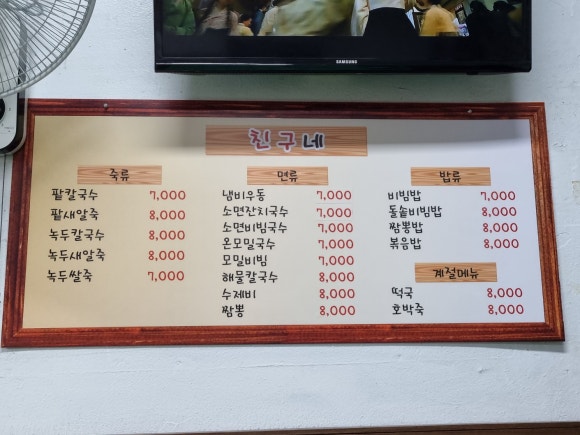 SAMSUNG
친구네
죽류
팥칼국수 7,000
팥새알죽 8,000
녹두칼국수 8,000
녹두새알죽 8,000
녹두쌀죽 7,000
면류
냄비우동 7,000
소면잔치국수 7,000
소면비빔국수 7,000
온모밀국수 7,000
모밀비빔 7,000
해물칼국수 8,000
수제비 8,000
짬뽕 8,000
밥류
비빔밥 7,000
돌솥비빔밥 8,000
짬뽕밥 8,000
볶음밥 8,000
계절메뉴
떡국 8,000
호박죽 8,000